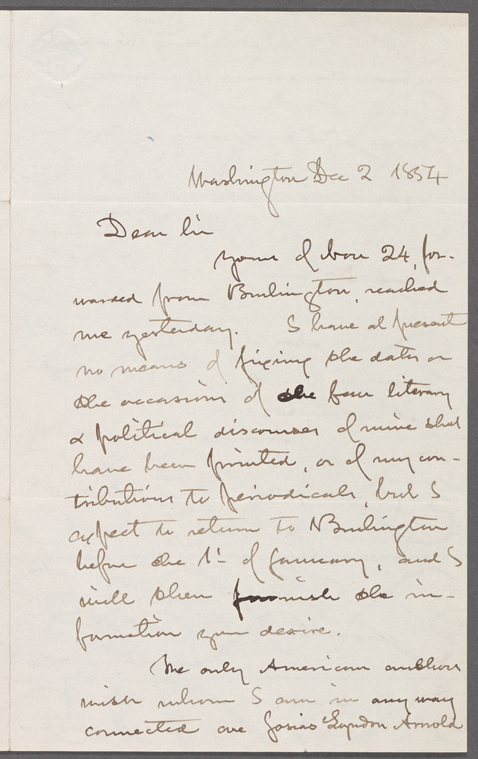 Washington Dec 2 1854
Dear Sir
yours of Nov 24, for-
warded from Burlington, reached
me yesterday. I have at present
no means of fixing the dates or
the occasions of the few literary
& political discourses of mine that
have been printed, or of my con-
tributions to periodicals, but I
expect to return to Burlington
before the 1st of January, and I
will then furnish the in-
formation you desire.
The only American authors
with whom I am in any way
connected are Josias Lyndon Arnold